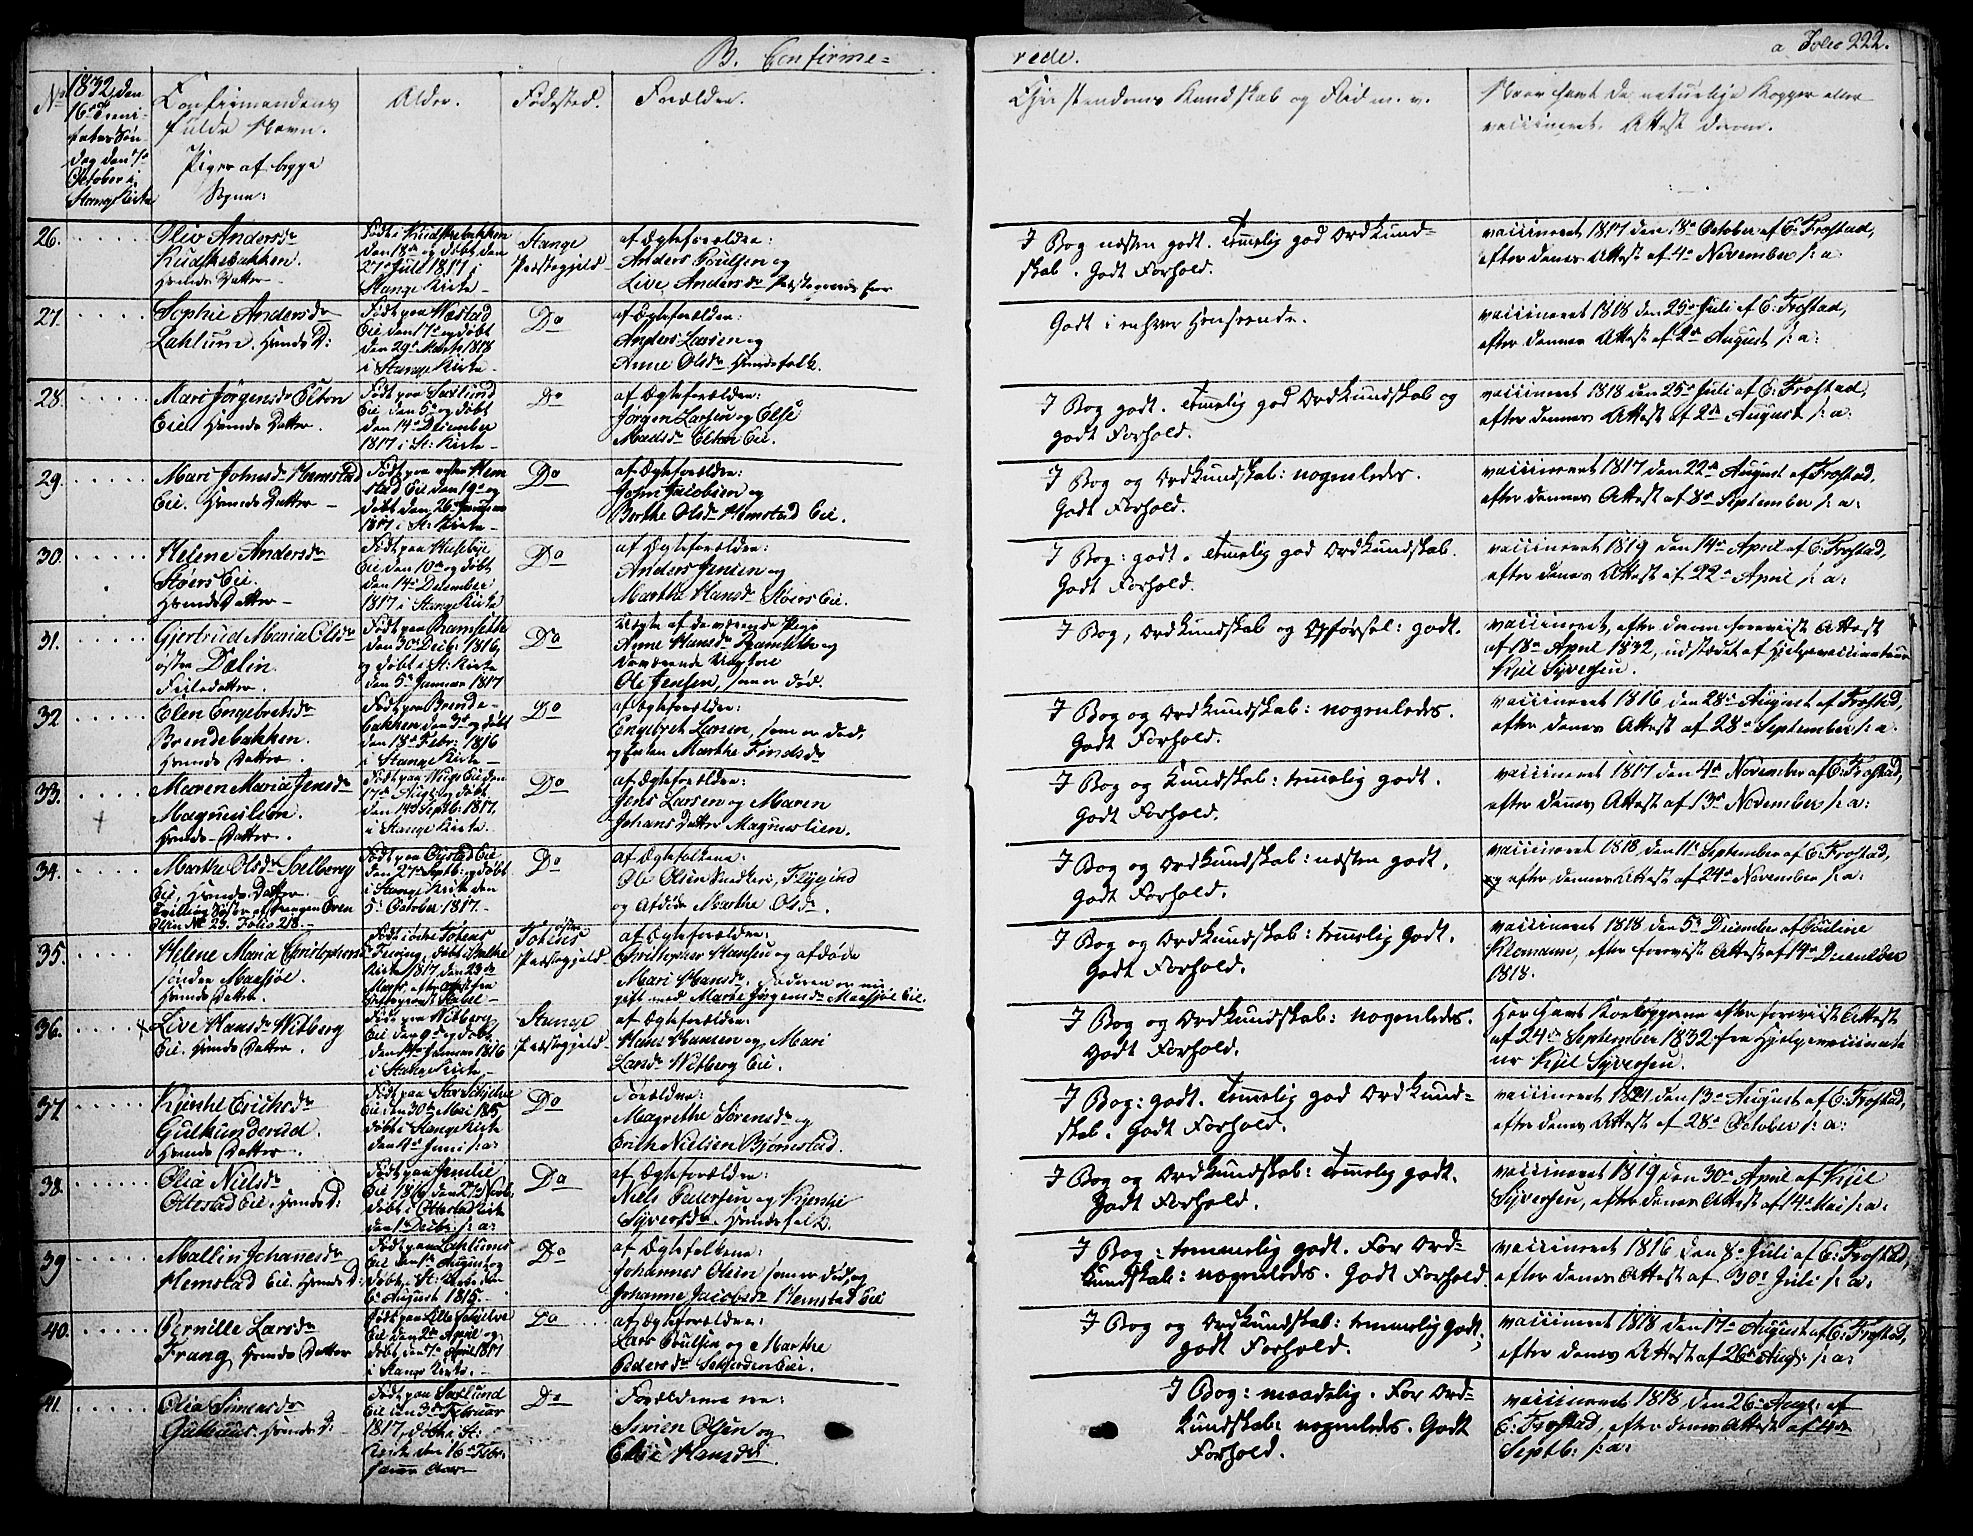 B. Confirme=
rede.
a Folio 222.
No
1832, den
16de Trini-
tatis Søn
dag den 7de
October i
Stange Kirke
Confirmandens
fulde Navn.
Piger af begge
Sogne:
Alder.
Fødested.
Forældre.
Christendoms Kundskab og Flid m. v.
Naar havt de naturlige Kopper eller
vaccineret. Attest derom.
26.
Oliv Andersdr
Kudskebakken.
Huusmds Datter
Født i Kudskebakken
den 18de og døbt den
27de Juli 1817 i
Stange Kirke
Stange
Præstegjeld
af Ægteforældre:
Anders Poulsen og
Live Andersdr Præstegaards Eier
I Bog næsten godt. Temmelig god Ordkund=
skab. Godt Forhold.
vaccineret 1817 den 18de October af C: Frostad,
efter dennes Attest af 4de November s: a:
27.
Sophie Andersdr
Lahlum. Huusmds D:
Født paa Næstad
Eie den 17de og døbt
den 29de Marts 1818
i Stange Kirke
Do
af Ægteforældre:
Anders Larsen og
Anne Olsdr Huusmdsfolk.
Godt i enhver Henseende.
vaccineret 1818 den 25de Juli af C: Frostad,
efter dennes Attest af 2den August s: a:
28.
Mari Jørgensdr Elton
Eie. Huusmds Datter.
Født paa Sælund
Eie den 5te og døbt
den 14de December
1817 i St: Kirke
Do
af Ægteforældre:
Jørgen Larsen og Else
Madsdr Elton Eie.
I Bog godt. Temmelig god Ordkundskab og
godt Forhold.
vaccineret 1818 den 25de Juli af C: Frostad,
efter dennes Attest af 2den August s: a:
29.
Mari Johnsdr Hemstad
Eie. Huusmds Datter
Født paa Hem
stad Eie den 19de og
døbt den 26de
1817 i St: Kirke
Do
af Ægteforældre:
John Jacobsen og
Berthe Olsdr Hemstad Eie.
I Bog og Ordkundskab: nogenledes.
Godt Forhold.
vaccineret 1817 den 22de August af Frostad,
efter dennes Attest af 8de September s: a:
30.
Helene Andersdr
Støers Eie.
Huusmds Datter
Født paa Huseby
Eie den 10de og døbt
den 14de December
1817 i Stange Kirke
Do
af Ægteforældre:
Anders Jensen og
Marthe Hansdr Støers Eie.
I Bog: godt. Temmelig god Ordkundskab.
Godt Forhold.
vaccineret 1819 den 14de April af C: Frostad,
efter dennes Attest af 22de April s: a:
31.
Gjertrud Maria Olsdr
østre Dælin.
Født paa Ramseth
den 30te Decbr: 1816,
og døbt i St: Kirke
den 5te Januar 1817
Do
Anne Hansdr Ramseth og
Ole Jensen, som er død.
I Bog, Ordkundskab og Opførsel: godt.
vaccineret, efter derom foreviist Attest
af 18de April 1832, udstædet af Hjelpevaccinateur
Kjel Syversen.
32
Elen Engebretsdr
Brendebakken.
Huusmds Datter.
Født paa Brende-
bakken den 3de og døbt
den 18de Febr: 1816
i Stange Kirke
Do
af Ægteforældre:
Engebret Larsen, som er død,
og Enken Marthe Findsdr
I Bog og Ordkundskab: nogenledes.
Godt Forhold.
vaccineret 1816 den 28de August af Frostad,
efter dennes Attest af 28de September s: a:
33.
Maren Maria Jensdr
Magnuslien.
Huusmds Datter.
17de Augt og døbt
den 14de Septbr: 1817,
i Stange Kirke.
Do
af Ægteforældre:
Jens Larsen og Maren
Johans Datter Magnuslien.
I Bog og Kundskab: temmelig godt.
Godt Forhold.
vaccineret 1817 den 4de November af C: Frostad,
efter dennes Attest af 13de November s: a:
34.
Marthe Olsdr Solberg
Eie, Huusmds Datter
Tvilling Søster af Drengen Even
Olsen No 29. Folio 218.
Født paa Opstad Eie
den 27de Septbr: og døbt
i Stange Kirke den
5te October 1817.
Do
af Ægtefolkene:
Ole Olsen Snedker,
og Afdøde Marthe Olsdr.
I Bog og Ordkundskab: næsten godt.
Godt Forhold.
vaccineret 1818, den 11te September af C: Frostad,
og efter dennes Attest af 24de November s: a:
35.
Helene Maria Christophersdr
søndre Maasjøl.
Huusmds Datter.
Totens
Præstegjeld
af Ægteforældre:
Christopher Hansen og afdøde
Mari Hansdr, Faderen er nu
gift med Marthe Jørgensdr Maasjøl Eie.
I Bog og Ordkundskab: temmelig godt.
Godt Forhold.
vaccineret 1818 den 5te December af Pauline
Klomann, efter foreviist Attest af 14de December
1818.
36.
Live Hansdr Witberg
Eie. Huusmds Datter.
Født paa Witberg
Eie den 9de og døbt
den 14de Januar 1816
i Stange Kirke
Stange
Præstegjeld
af Ægteforældre:
Hans Hansen og Mari
Larsdr Witberg Eie.
I Bog og Ordkundskab: nogenledes.
Godt Forhold.
Har havt Koekopperne efter foreviist Attest
af 24de September 1832 fra Hjelpevaccinate
ur Kjel Syversen.
37.
Kjersti Erichsdr
Gulhunderud.
Huusmds Datter.
Eie den 30te Mai 1815,
døbt i Stange Kirke
den 4de Juni s: a:
Do
Forældre:
Magrethe Sørensdr og
Erik Nielsen Bjørnstad.
I Bog: godt. Temmelig god Ordkund=
skab. Godt Forhold.
vaccineret 1821 den 13de August af C: Frostad,
efter dennes Attest af 28de October s: a:
38.
Olia Nielsdr
Ottestad Eie. Huusmds D:
Eie 1816 den 27de Novb.
døbt i Ottestad Kirke
den 1ste Decbr: s: a:
Do
af Ægteforældre:
Niels Pedersen og Kjersti
Syversdr. Huusmdsfolk.
I Bog og Ordkundskab: temmelig godt.
Godt Forhold.
vaccineret 1819 den 30te April af Kjel
Syversen, efter dennes Attest af 14de Mai s: a:
39
Mallin Johanesdr
Hemstad Eie. Huusmds D:
Født paa Lahlums
Eie den 1ste August og
døbt i St: Kirke den
6te August 1815.
Do
af Ægtefolkene:
Johannes Olsen som er død, og
Johanne Jacobsdr Hemstad Eie
I Bog: temmelig godt. For Ord=
kundskab: nogenledes. Godt Forhold
vaccineret 1816 den 8de Juli af C: Frostad,
efter dennes Attest af 30te Juli s: a:
40.
Pernille Larsdr
Frang. Huusmds Datter
Født paa Lille Schjelve
Eie den 2den April og
døbt den 7de April 1817
i Stange Kirke.
Do
af Ægteforældre:
Lars Poulsen og Marthe
Pedersdr Eie.
I Bog og Ordkundskab: temmelig godt,
godt Forhold.
vaccineret 1818 den 17de August af C: Frostad,
efter dennes Attest af 26de Aug: s: a:
41.
Olia Simensdr
Guthuus. Huusmds D:
Født paa Sælund
Eie den 3de Februar
1817, døbt i St:
Kirke den 16de Febr:
samme Aar
Do
Forældrene ere:
Simen Olsen og
Elsie Hansdr.
I Bog: maadelig. For Ord=
kundskab: nogenledes. Godt
Forhold.
vaccineret 1818 den 26de Aug: af
C: Frostad, efter dennes Attest af 4de
Septb: s: a: